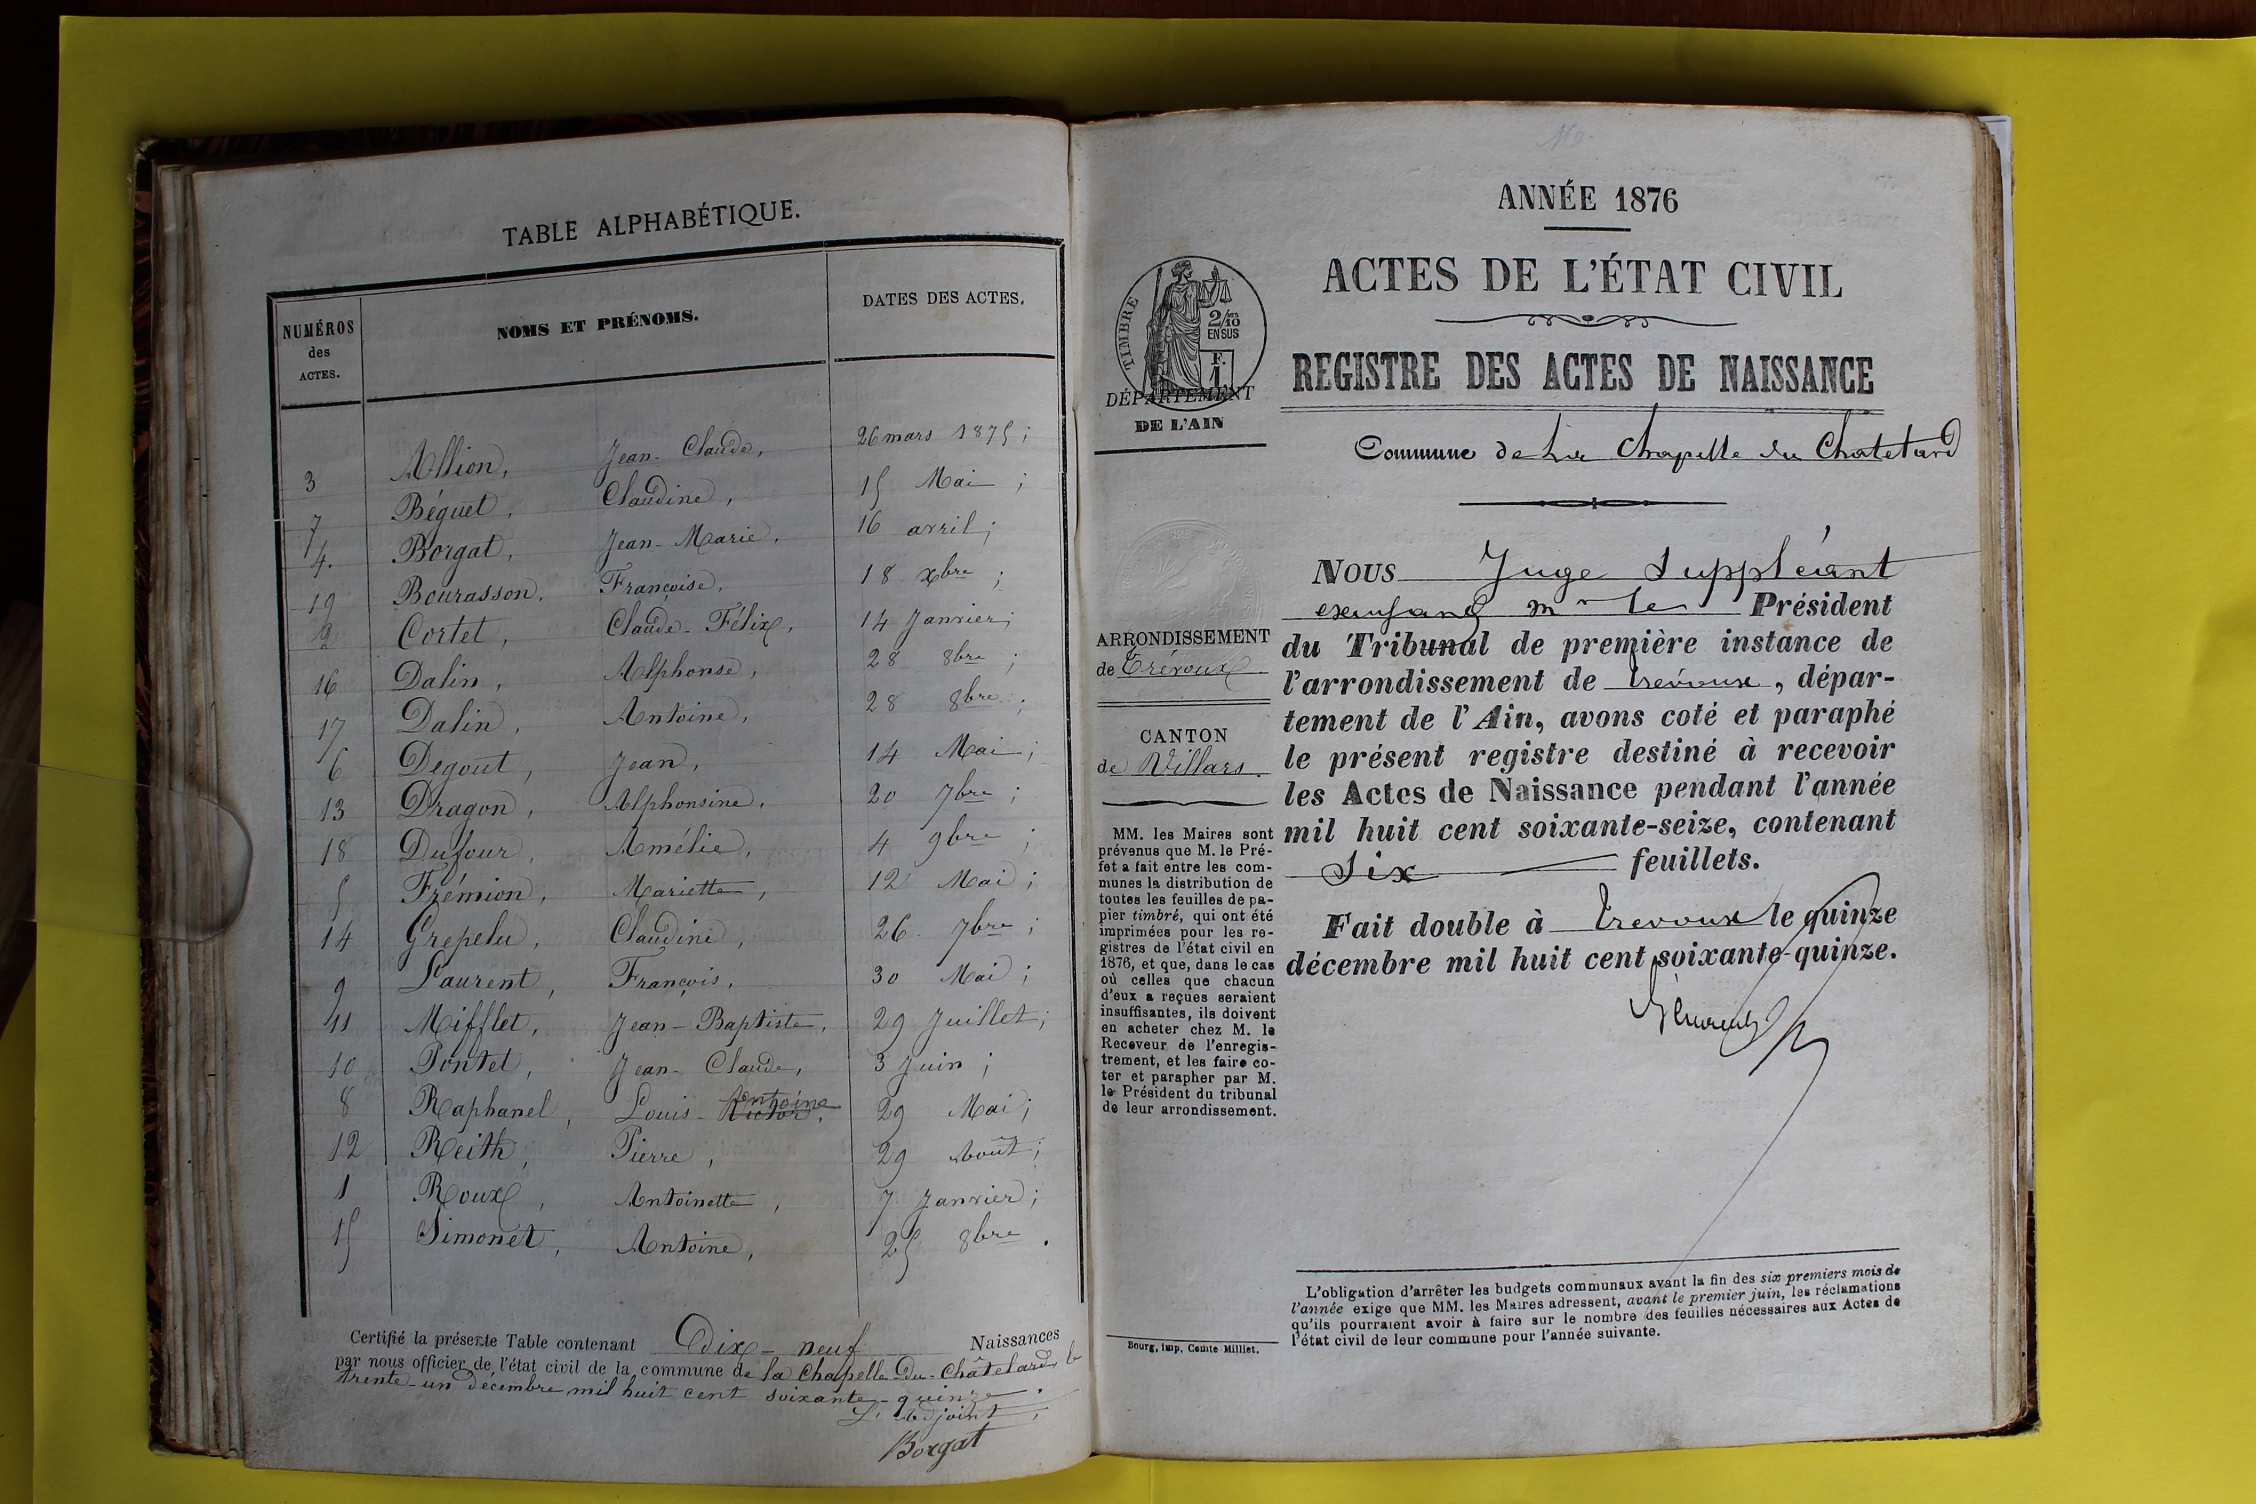 TABLE ALPHABÉTIQUE.
NUMÉROS des ACTES. NOMS ET PRÉNOMS. DATES DES ACTES.
3 Allion, Jean-Claude, 26 mars 1875;
7 Béguet, Claudine, 15 Mai;
4. Borgat, Jean-Marie, 16 avril;
19 Bourasson, Françoise, 18 xbre;
2 Cortet, Claude-Félix, 14 Janvier;
16 Dalin, Alphonse, 28 8bre;
17 Dalin, Antoine, 28 8bre;
6 Degout, Jean, 14 Mai;
13 Dragon, Alphonsine, 20 7bre;
18 Dufour, Amélie, 4 9bre;
5 Frémion, Mariette, 12 Mai;
14 Grepelu, Claudine, 26 7bre;
9 Laurent, François, 30 Mai;
11 Mifflet, Jean-Baptiste, 29 Juillet;
10 Pontet, Jean-Claude, 3 Juin;
8 Raphanel, Louis-Antoine 29 Mai;
12 Reith, Pierre, 29 Août;
1 Roux, Antoinette, 7 Janvier;
15 Simonet, Antoine, 25 8bre.
Certifié la présente Table contenant Dix-neuf Naissances
par nous officier de l'état civil de la commune de la Chapelle-Du-Châtelard, le
trente-un décembre mil huit cent soixante-quinze.
L'adjoint,
Borgat
ANNÉE 1876
ACTES DE L'ÉTAT CIVIL
REGISTRE DES ACTES DE NAISSANCE
Commune de La Chapelle du Chatelard
TIMBRE
2/10
EN SUS
F.
1
DÉPARTEMENT
DE L'AIN
ARRONDISSEMENT
de Trévoux
CANTON
de Villars.
MM. les Maires sont
prévenus que M. le Pré-
fet a fait entre les com-
munes la distribution de
toutes les feuilles de pa-
pier timbré, qui ont été
imprimées pour les re-
gistres de l'état civil en
1876, et que, dans le cas
où celles que chacun
d'eux a reçues seraient
insuffisantes, ils doivent
en acheter chez M. le
Receveur de l'enregis-
trement, et les faire co-
ter et parapher par M.
le Président du tribunal
de leur arrondissement.
Bourg, imp. Comte Milliet.
NOUS Juge Suppléant
Mr le Président
du Tribunal de première instance de
l'arrondissement de Trévoux, dépar-
tement de l'Ain, avons coté et paraphé
le présent registre destiné à recevoir
les Actes de Naissance pendant l'année
mil huit cent soixante-seize, contenant
Six feuillets.
Fait double à Trevoux le quinze
décembre mil huit cent soixante-quinze.
L'obligation d'arrêter les budgets communaux avant la fin des six premiers mois de
l'année exige que MM. les Maires adressent, avant le premier juin, les réclamations
qu'ils pourraient avoir à faire sur le nombre des feuilles nécessaires aux Actes de
l'état civil de leur commune pour l'année suivante.